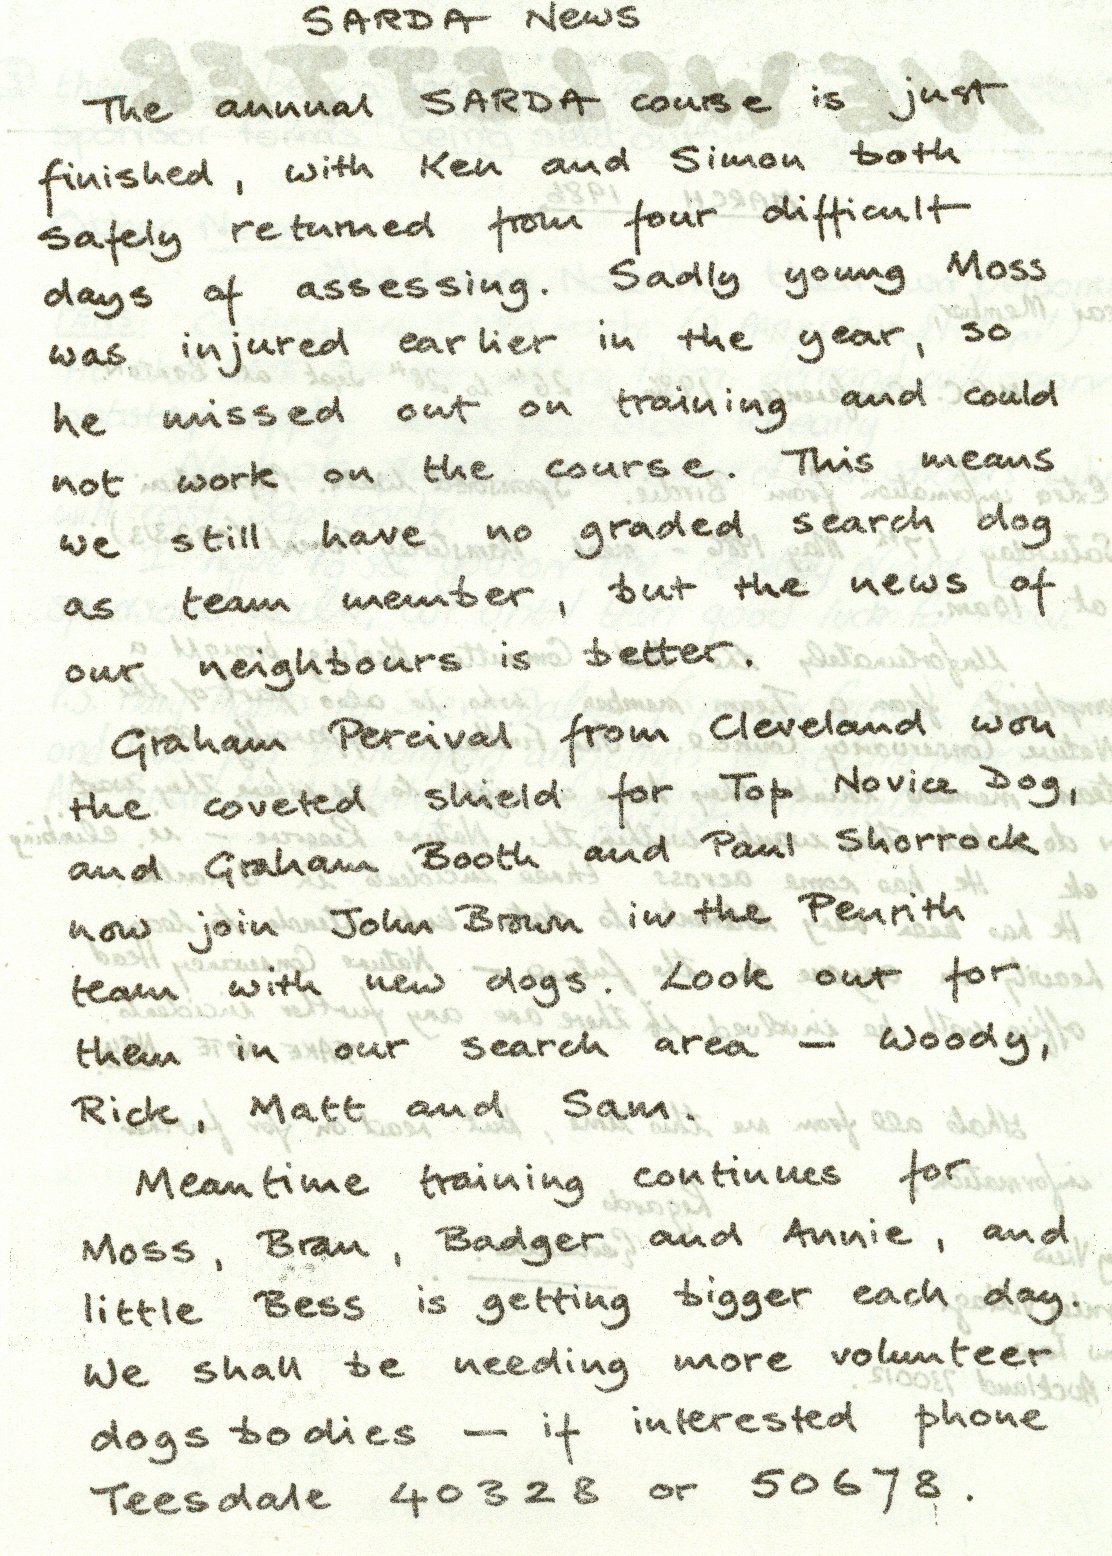 SARDA News
The annual SARDA course is just
finished, with Ken and Simon both
safely returned from four difficult
days of assessing. Sadly young Moss
was injured earlier in the year, so
he missed out on training and could
not work on the course. This means
we still have no graded search dog
as team member, but the news of
our neighbours is better.
Graham Percival from Cleveland won
the coveted shield for Top Novice Dog,
and Graham Booth and Paul Shorrock
now join John Brown in the Penrith
team with new dogs. Look out for
them in our search area — Woody,
Rick, Matt and Sam.
Meantime training continues for
Moss, Bran, Badger and Annie, and
little Bess is getting bigger each day.
We shall be needing more volunteer
dogsbodies — if interested phone
Teesdale 40328 or 50678.